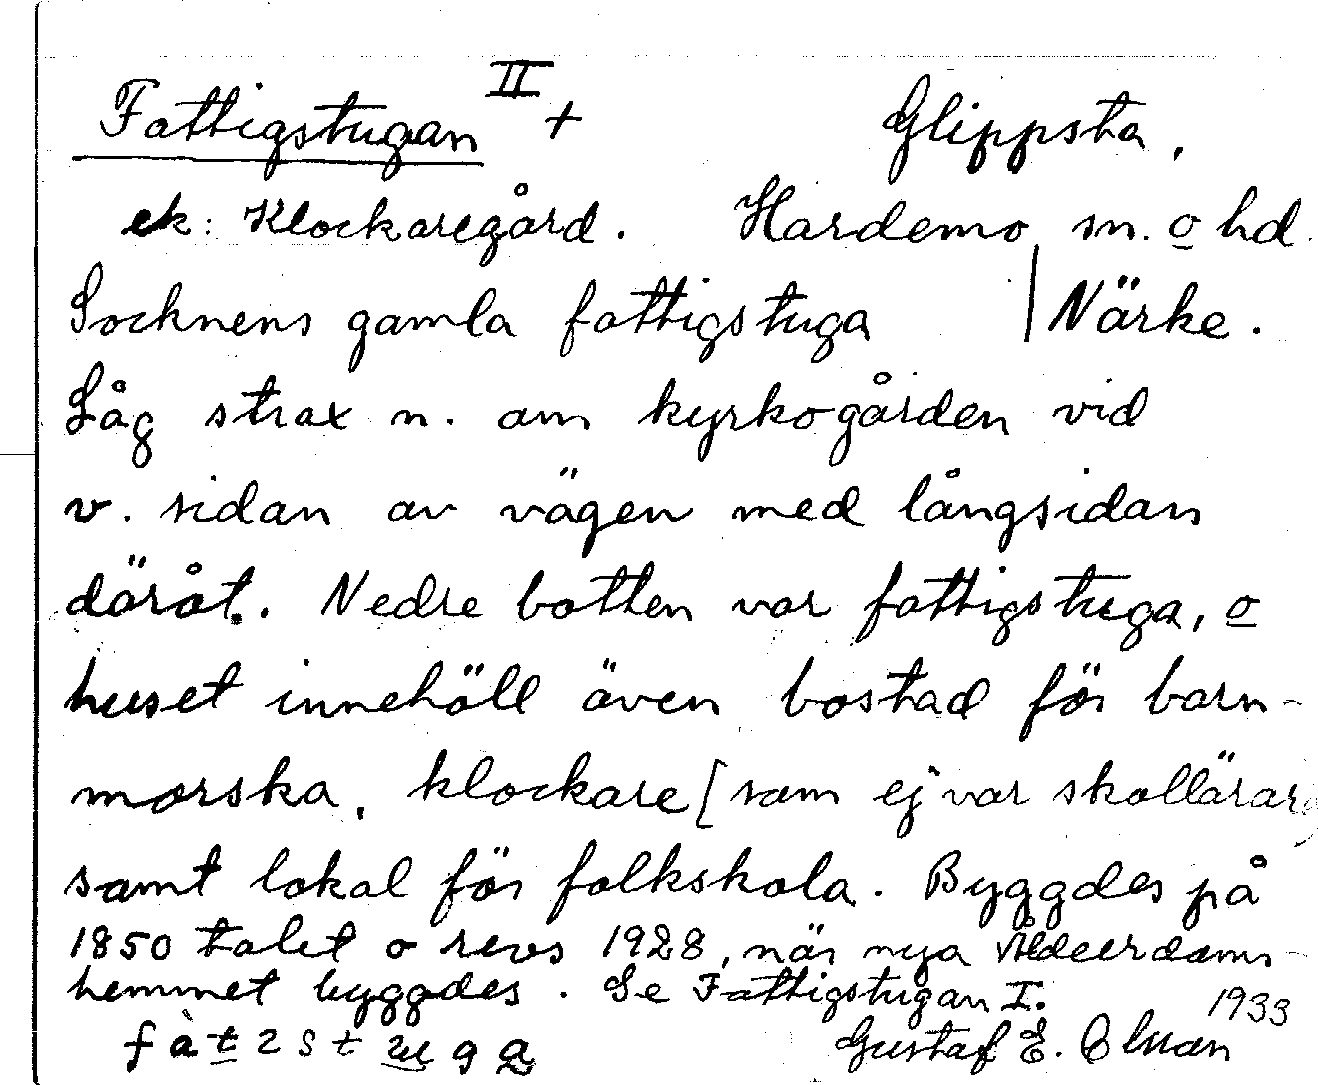 Fattigstugan II + Glippsta,
ek: Klockaregård. Hardemo sn. o hd.
Socknens gamla fattigstuga | Närke.
Låg strax n. om kyrkogården vid
v. sidan av vägen med långsidan
däråt. Nedre botten var fattigstuga, o
huset innehöll även bostad för barn-
morska, klockare [som ej var skollärare]
samt lokal för folkskola. Byggdes på
1850 talet o revs 1928, när nya Ålderdoms-
hemmet byggdes. Se Fattigstugan I.
1933
Gustaf E.